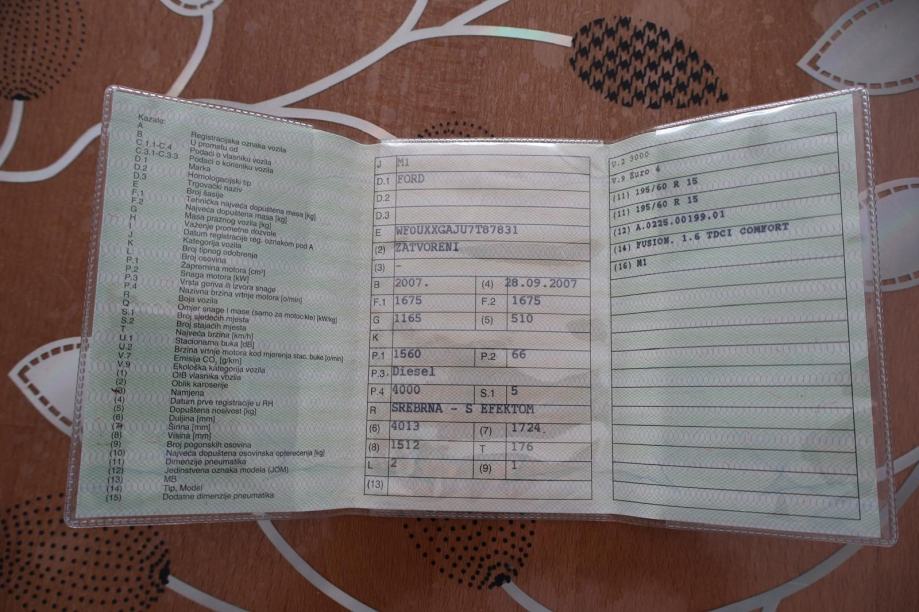 Kazalo:
A Registracijska oznaka vozila
B U prometu od
C.1.1-C.4 Podaci o vlasniku vozila
C.3.1-C.3.3 Podaci o korisniku vozila
D.1 Marka
D.2 Homologacijski tip
D.3 Trgovački naziv
E Broj šasije
F.1 Tehnička najveća dopuštena masa [kg]
F.2 Najveća dopuštena masa [kg]
G Masa praznog vozila [kg]
H Važenje prometne dozvole
I Datum registracije reg. oznakom pod A
J Kategorija vozila
K Broj tipnog odobrenja
L Broj osovina
P.1 Zapremina motora [cm³]
P.2 Snaga motora [kW]
P.3 Vrsta goriva ili izvora snage
P.4 Nazivna brzina vrtnje motora [o/min]
R Boja vozila
Q Omjer snage i mase (samo za motocikle) [kW/kg]
S.1 Broj sjedećih mjesta
S.2 Broj stajaćih mjesta
T Najveća brzina [km/h]
U.1 Stacionarna buka [dB]
U.2 Brzina vrtnje motora kod mjerenja stac. buke [o/min]
V.7 Emisija CO₂ [g/km]
V.9 Ekološka kategorija vozila
(1) OIB vlasnika vozila
(2) Oblik karoserije
(3) Namjena
(4) Datum prve registracije u RH
(5) Dopuštena nosivost [kg]
(6) Duljina [mm]
(7) Širina [mm]
(8) Visina [mm]
(9) Broj pogonskih osovina
(10) Najveća dopuštena osovinska opterećenja [kg]
(11) Dimenzije pneumatika
(12) Jedinstvena oznaka modela (JOM)
(13) MB
(14) Tip, Model
(15) Dodatne dimenzije pneumatika
J M1
D.1 FORD
D.2
D.3
E WF0UXXGAJU7T87831
(2) ZATVORENI
(3) –
B 2007. (4) 28.09.2007
F.1 1675 F.2 1675
G 1165 (5) 510
K
P.1 1560 P.2 66
P.3 Diesel
P.4 4000 S.1 5
R SREBRNA - S EFEKTOM
(6) 4013 (7) 1724.
(8) 1512 T 176
L 2 (9) 1
(13)
V.9 Euro 4
(11) 195/60 R 15
(11) 195/60 R 15
(12) A.0225.00199.01
(14) FUSION. 1.6 TDCI COMFORT
(16) M1